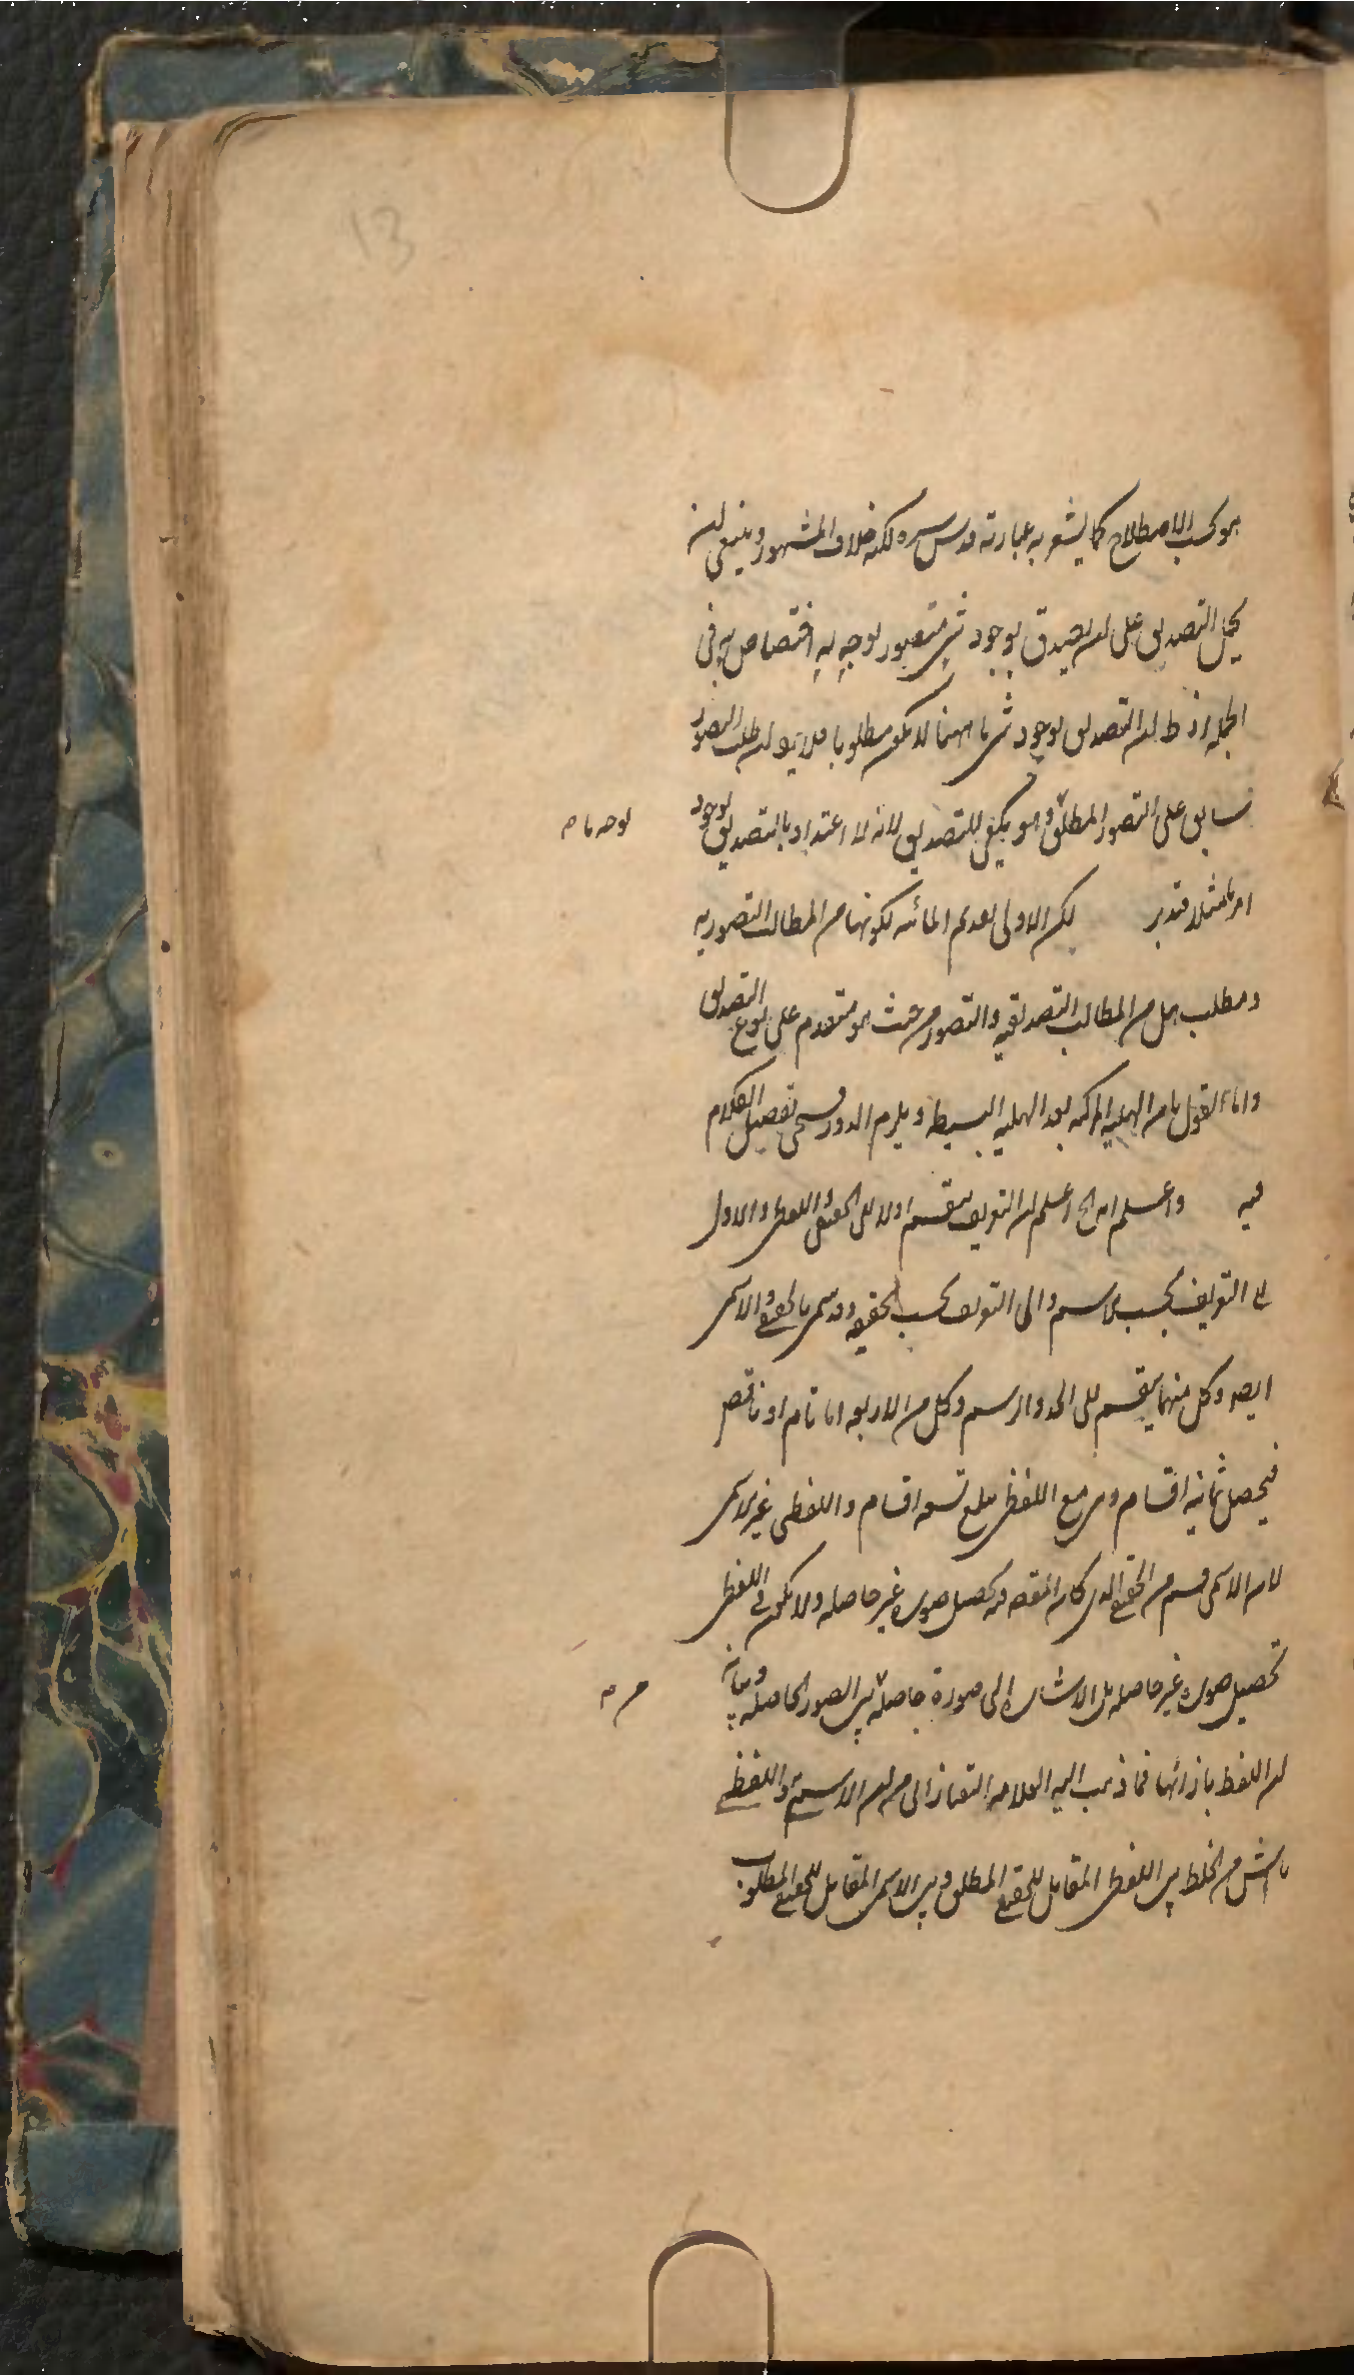 13
هو بحسب الاصطلاح كما يشعر به عبارته قدس سره لكنه خلاف المشهور وينبغي ان
يحمل التصديق على ان يصدق بوجود شئ متصور بوجه له اختصاص به في
الجملة اذ ظ ان التصديق بوجود شئ ما ههنا لا يكون مطلوبا فلا يرد ان طلب التصور
سابق على التصور المطلق وهو يكفي للتصديق لانه لا اعتداد بالتصديق بوجود
بوجه ما م
امر ما مثلا فتدبر لكن الاولى تقديم المائية لكونها من المطالب التصورية
ومطلب هل من المطالب التصديقية والتصور من حيث هو متقدم على نوع التصديق
واما القول بان الهلية المركبة بعد الهلية البسيطة ويلزم الدور فسيجئ تفصيل الكلام
فيه واعلم ان الخ اعلم ان التعريف ينقسم اولا الى الحقيقي واللفظي والاول
الى التعريف بحسب الاسم والى التعريف بحسب الحقيقة وقد سمى بالحقيقي والاسمي
ايضا وكل منهما ينقسم الى الحد والرسم وكل من الاربعة اما تام او ناقص
فيحصل ثمانية اقسام وهي مع اللفظي تبلغ تسعة اقسام واللفظي غير الاسمي
لان الاسمي قسم من الحقيقي الذي كان المقصود فيه تحصيل صورة غير حاصلة ولا يكون في اللفظي
تحصيل صورة غير حاصلة بل الاشارة الى صورة حاصلة من الصور الحاصلة وبيان
من م
ان اللفظ بازائها فما ذهب اليه العلامة التفتازاني من ان الاسمي واللفظي
ناش من الخلط بين اللفظي المقابل للحقيقي المطلق وبين الاسمي المقابل للحقيقي المطلوب